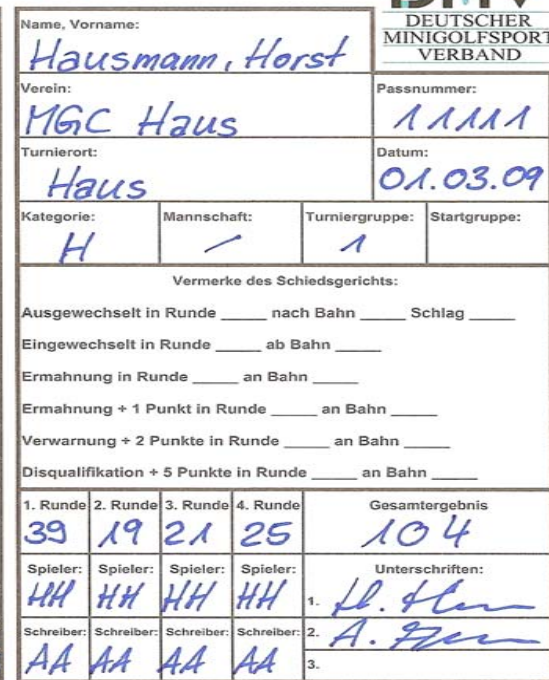 DEUTSCHER
MINIGOLFSPORT
VERBAND
Name, Vorname:
Hausmann, Horst
Verein: Passnummer:
MGC Haus 11111
Turnierort: Datum:
Haus 01.03.09
Kategorie: Mannschaft: Turniergruppe: Startgruppe:
H / 1
Vermerke des Schiedsgerichts:
Ausgewechselt in Runde _____ nach Bahn _____ Schlag _____
Eingewechselt in Runde _____ ab Bahn _____
Ermahnung in Runde _____ an Bahn _____
Ermahnung + 1 Punkt in Runde _____ an Bahn _____
Verwarnung + 2 Punkte in Runde _____ an Bahn _____
Disqualifikation + 5 Punkte in Runde _____ an Bahn _____
1. Runde 2. Runde 3. Runde 4. Runde Gesamtergebnis
39 19 21 25 104
Spieler: Spieler: Spieler: Spieler: Unterschriften:
HH HH HH HH 1.
Schreiber: Schreiber: Schreiber: Schreiber: 2. A.
AA AA AA AA 3.